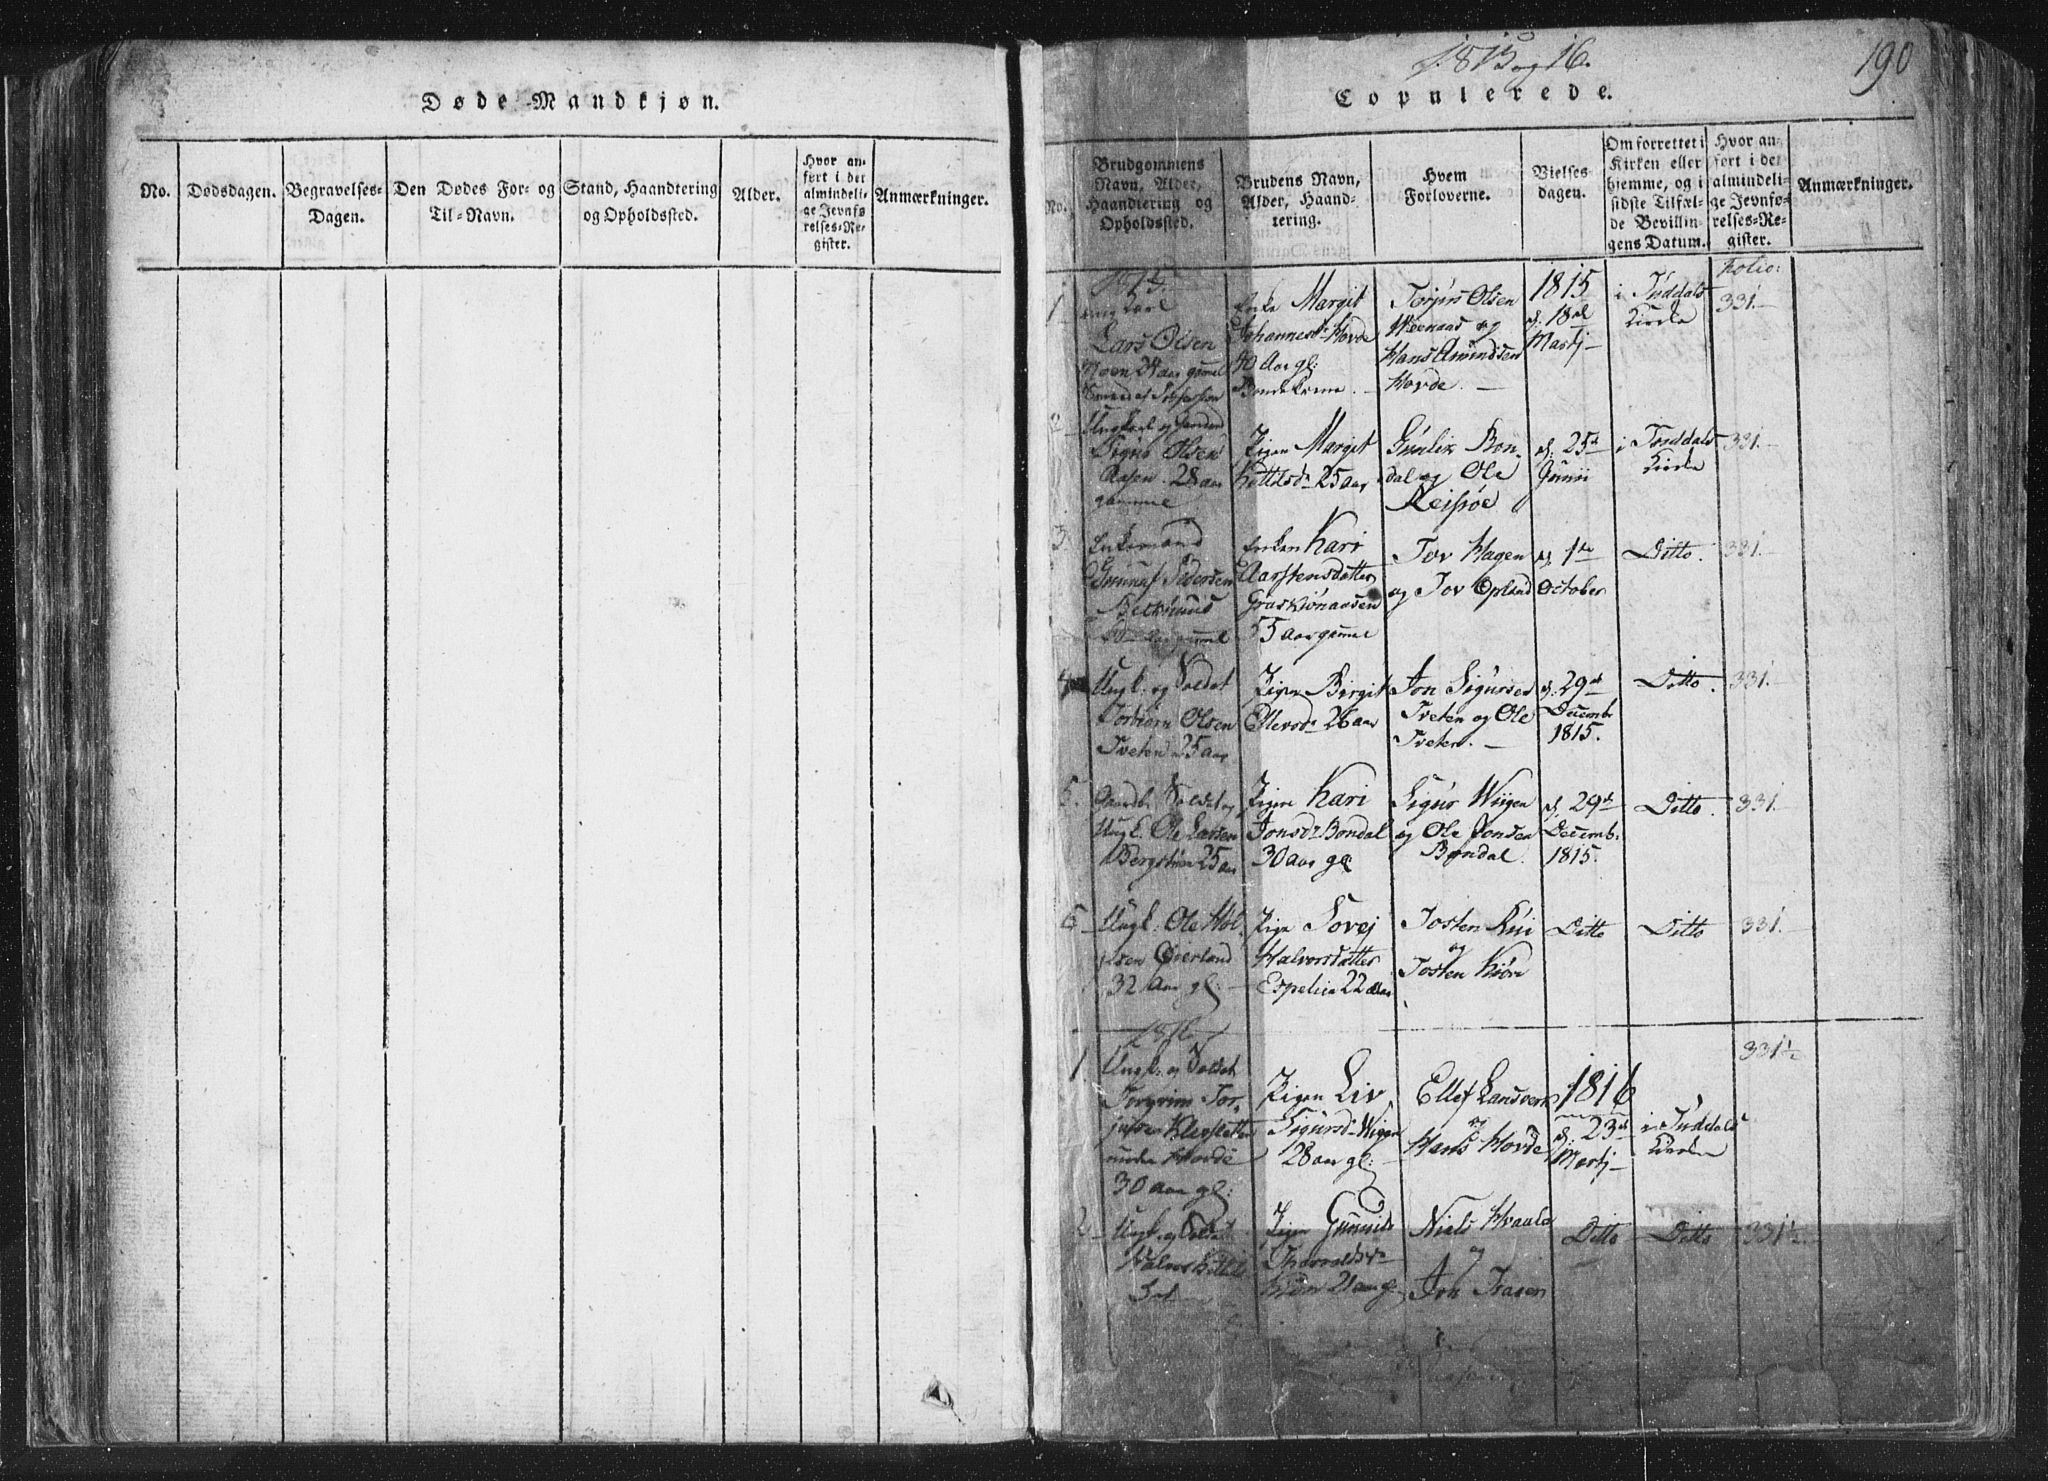 Døde Mandkjøn.
No.
Dødsdagen.
Begravelses-
Dagen.
Den Dødes For- og
Til-Navn.
Stand, Haandtering
og Opholdssted.
Alder.
Hvor an-
ført i det
almindeli-
ge Jevnfø-
relses-Re-
gister.
Anmærkninger.
1815 og 16.
190
Copulerede.
No.
Brudgommens
Navn, Alder,
Haandtering og
Opholdssted.
Brudens Navn,
Alder, Haand-
tering.
Hvem
Forloverne.
Vielses
dagen.
Om forrettet i
Kirken eller
hjemme, og i
sidste Tilfæl-
de Bevillin-
gens Datum.
Hvor an-
ført i det
almindeli-
ge Jevnfø-
relses-Re-
gister.
Anmærkninger.
1815.
1
Lars Olsen
Moen 24 aar gammel
Enke Margit
Johannesd: Hovde
40 Aar gl:
Torjus Olsen
og
Hans Amundsen
Hovde.
1815
d: 18de
Martj
i Tuddals
Kirke
Folio:
331.
2
Ungkarl og
Sigur Olsen
Aasen. 28 aar
gamme
Pigen Margit
Kittilsd: 25 aar
Gunlik Bon-
dal og Ole
Reisjøe
d: 25de
Junii
i Tuddals
Kirke
331.
3
Enkemand
Gunnuf Pedersen
Enken Kari
Aarstensdatter
55 aar gamme
Tov Hagen
og Tov Opland
d. 1te
October
Ditto.
331.
4
Ungk: og Soldat
Torbiørn Olsen
Tveten 25 aar
Pigen Birgit
Ellevsd: 26 aar
Jon Sigursen
Tveten og Ole
Tveten.
d: 29de
Decembr
1815.
Ditto.
331.
5.
Soldat og
Ungk. Ole Larsen
25 aar
Pigen Kari
Jonsdr Bondal
30 aar gl:
Sigur Wiigen
og Ole Jonsen
Bondal.
d. 29de
Decemb.
1815.
Ditto.
331.
6
Ungk: Ole
Øverland
32 Aar gl:
Pige Tovej
Halvorsdatter
Espelien 22 Aar
Josten
og
Josten
Ditto
Ditto
331.
1816
1.
Ungk: og Soldat
Torgrim Tor-
jusen Klevsletten
under Hovde
30 aar gl:
Pigen Liv
Sigursd: Wigen
28 aar gl:
Ellef Landsverk
og
Hans Hovde
1816
d: 23de
Martj
i Tuddals
Kirke
331½
2
Ungk. og Soldat
Halvor Kittils
Pigen Gunnild
21 aar gl.
Niels Hvaale
og
Jon Traaen
Ditto
Ditto
331½